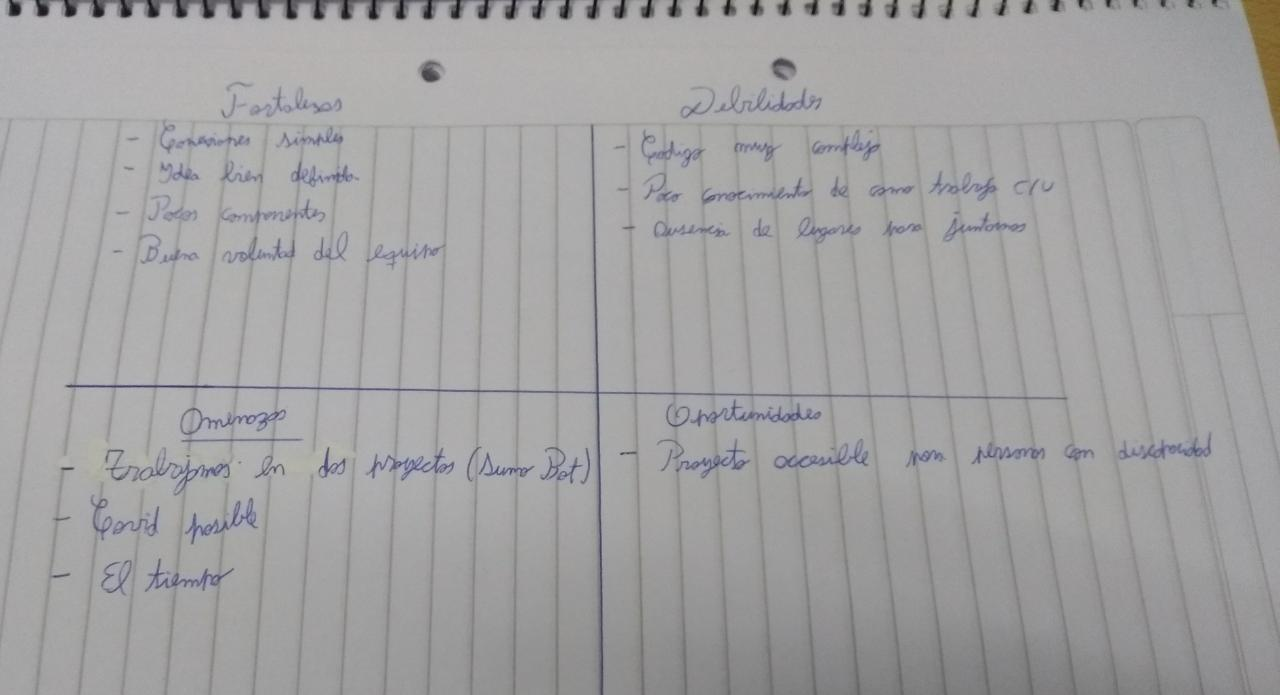 Fortalezas
- Conexiones simples
- Idea bien definida.
- Pocos componentes
- Buena voluntad del equipo
Debilidades
- Codigo muy complejo
- Poco conocimiento de como trabaja c/u
- Ausencia de lugares para juntarnos
Amenazas
- Trabajamos en dos proyectos (Sumo Bot)
- Covid posible
- El tiempo
Oportunidades
- Proyecto accesible para personas con discapacidad